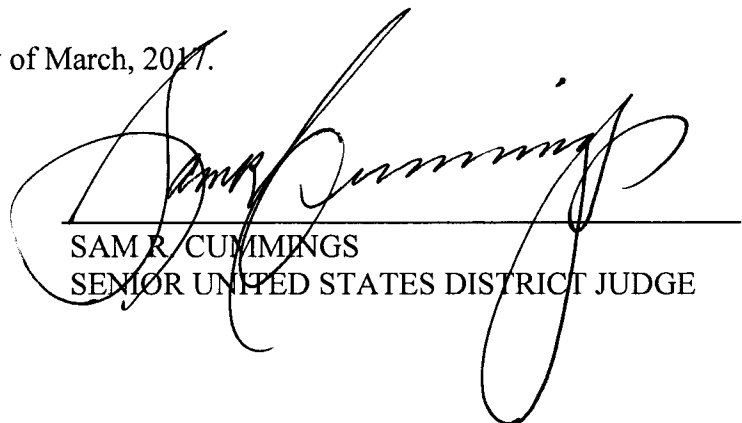 of March, 2017.
Sam R Cummings
SAM R. CUMMINGS
SENIOR UNITED STATES DISTRICT JUDGE